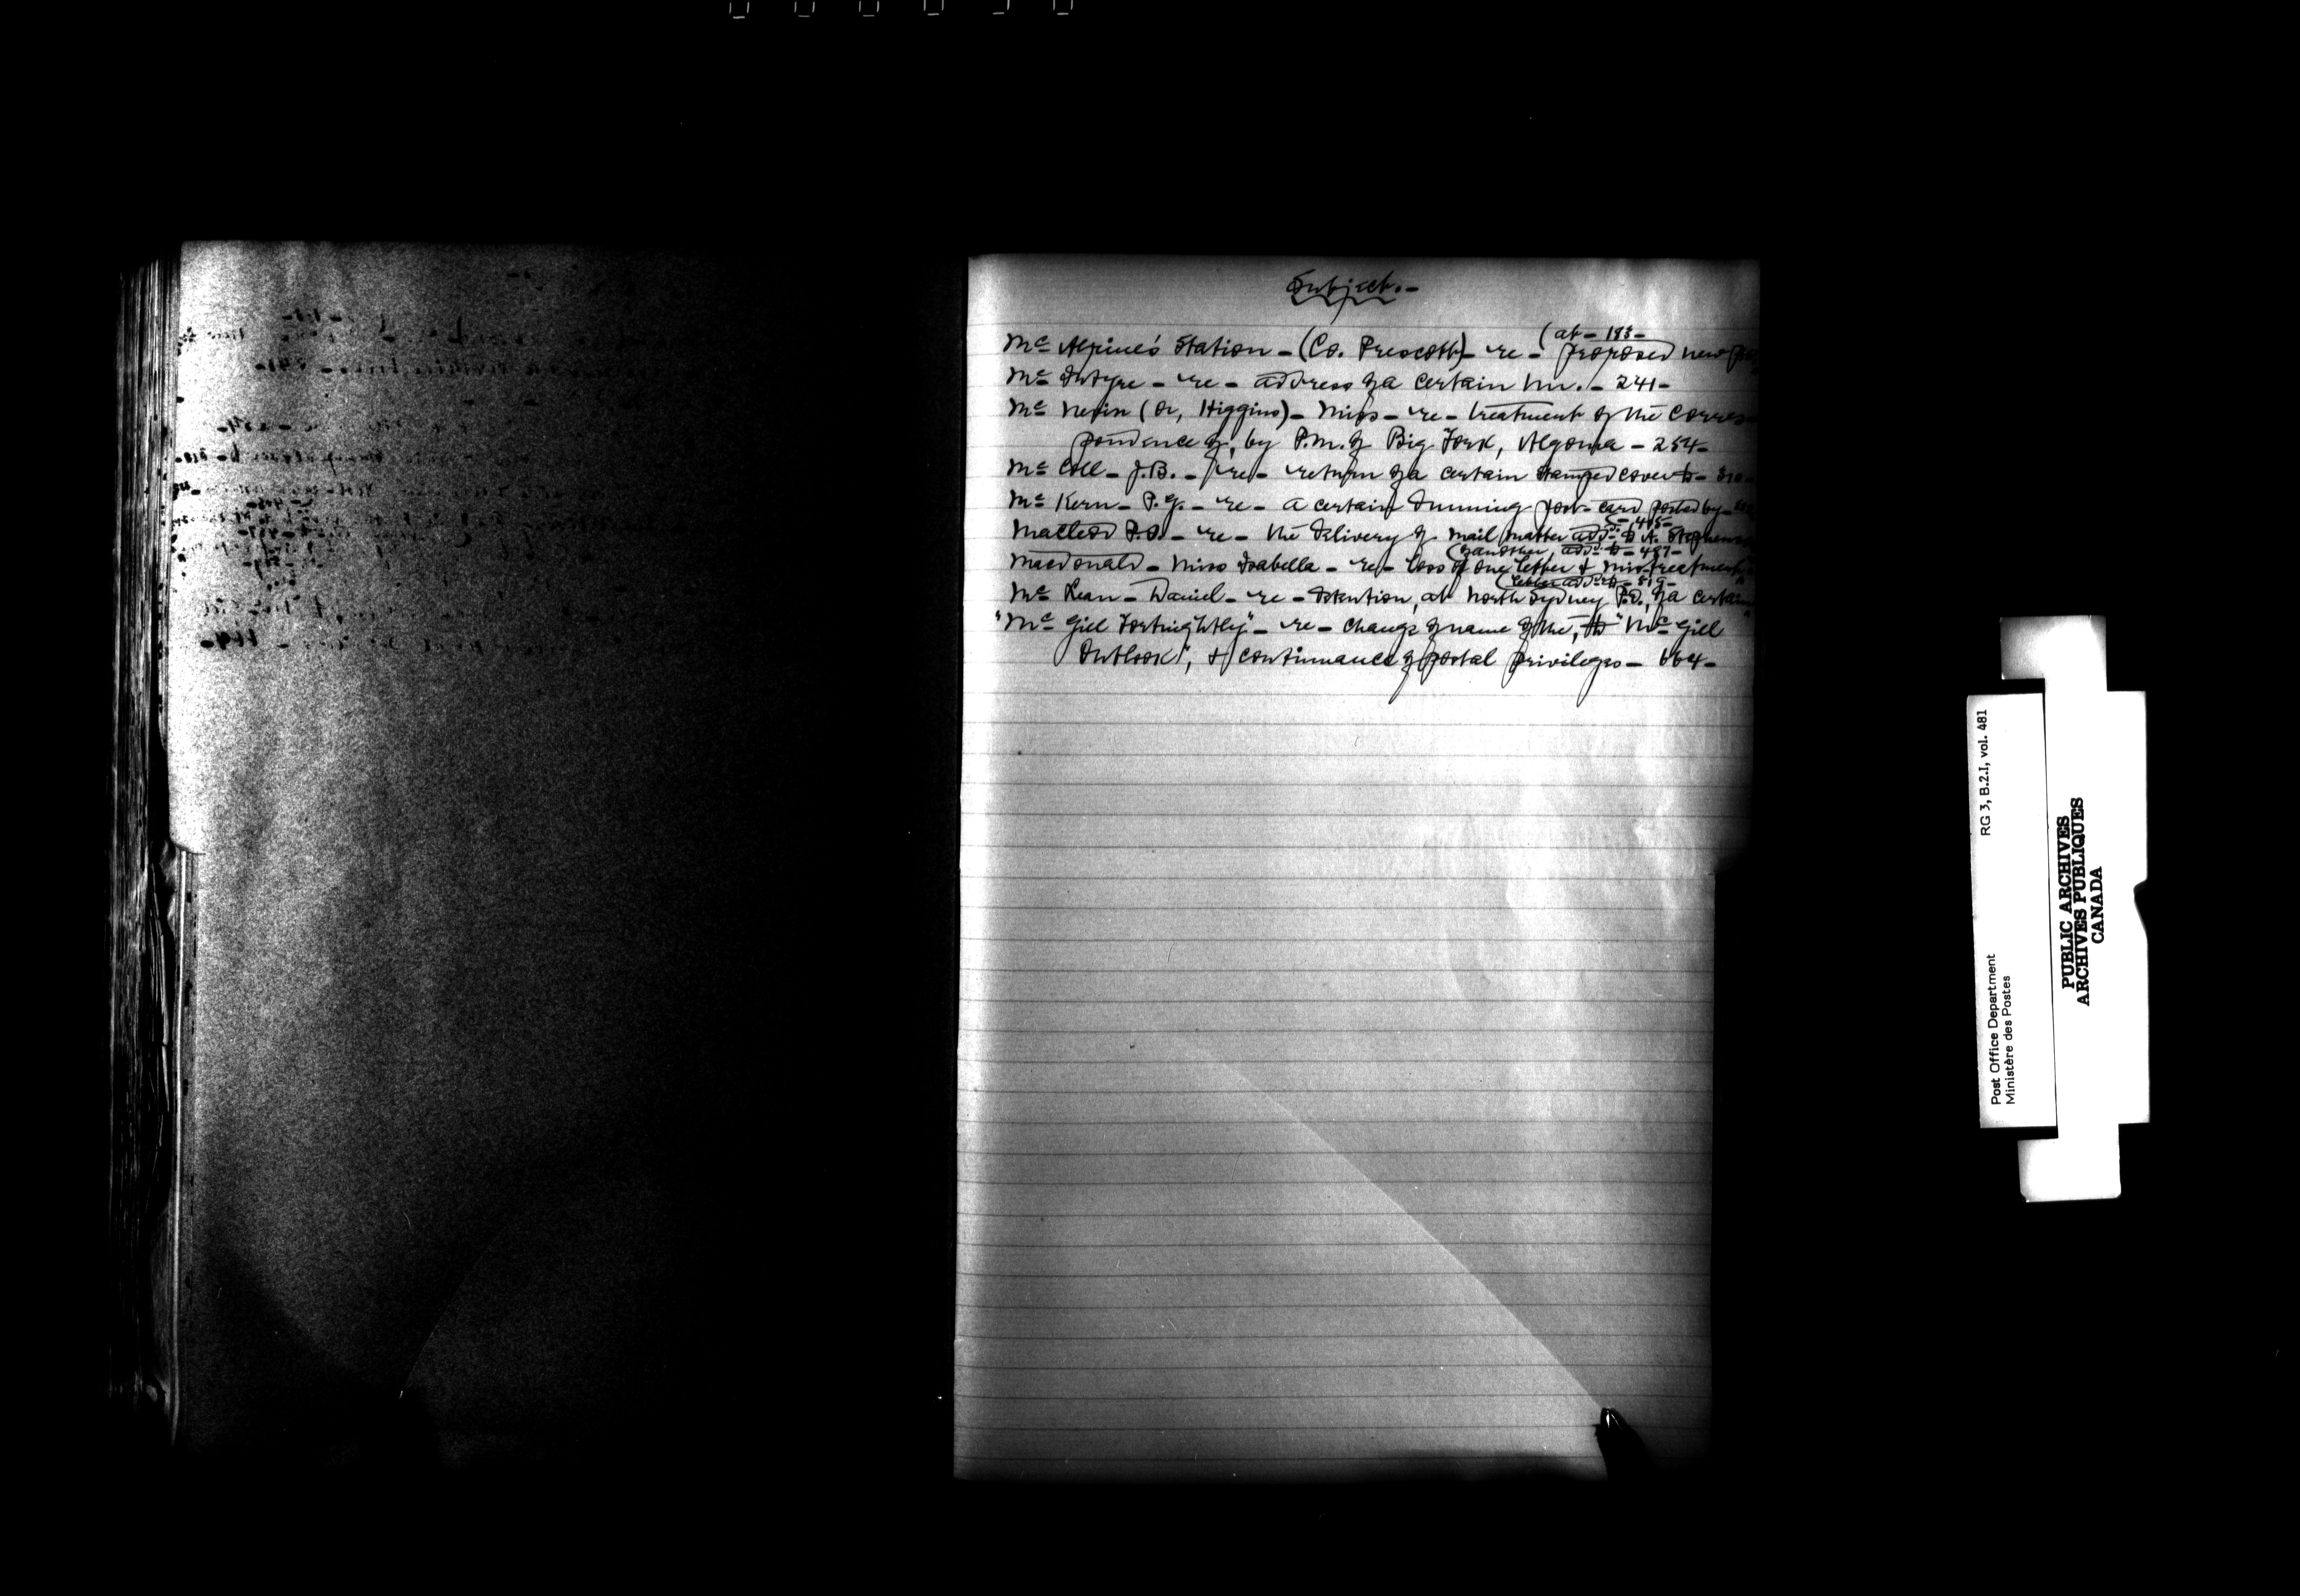 Subject.-
(at - 183 -
Mc Alpine's Station - (Co. Prescott) - re - proposed new
Mc Intyre - re - address of a certain Mr. - 241 -
Mc Nevin (or, Higgins) - Miss - re - treatment of the corres-
pondence of, by P.M. of Big Fork, Algoma - 254 -
Mc Coll - J.B. - re - return of a certain stamped cover to -
Mc Kern - P. - re - a certain dunning post-card posted by -
- 405 -
Macleod P.O. - re - the delivery of mail matter add. to A. Stephenson
(another, add. to - 487 -
Macdonald - Miss Isabella - re - loss of one letter & mistreatment
(letter add. to - 519 -
Mc Kean - Daniel - re - detention, at North Sydney P.O., of a certain
"Mc Gill Fortnightly" - re - change of name of the, to "Mc Gill
Outlook", & continuance of postal privileges - 664 -
Post Office Department
Ministère des Postes
RG 3, B.2.I, vol. 481
PUBLIC ARCHIVES
ARCHIVES PUBLIQUES
CANADA